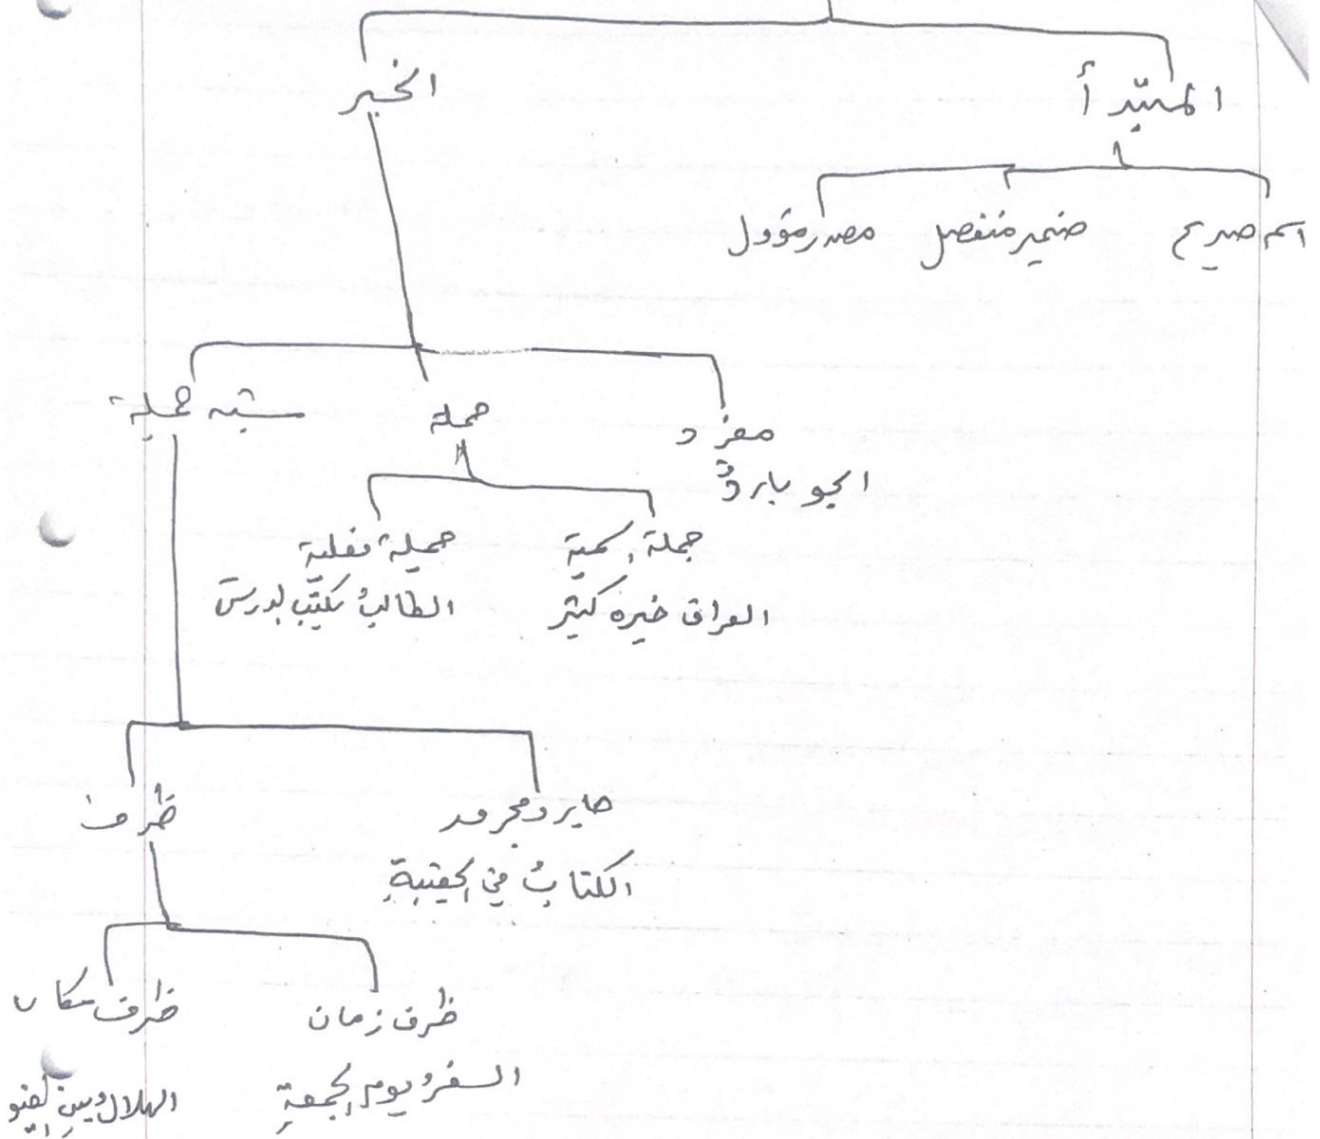 المبتدأ
الخبر
اسم صريح
ضمير منفصل
مصدر مؤول
مفرد
الجو باردٌ
جملة
شبه جملة
جملة اسمية
العراق خيره كثير
جملة فعلية
الطالبُ يكتب الدرسَ
جار ومجرور
الكتابُ في الحقيبةِ
ظرف
ظرف زمان
السفرُ يوم الجمعةِ
ظرف مكان
الهلالُ بين